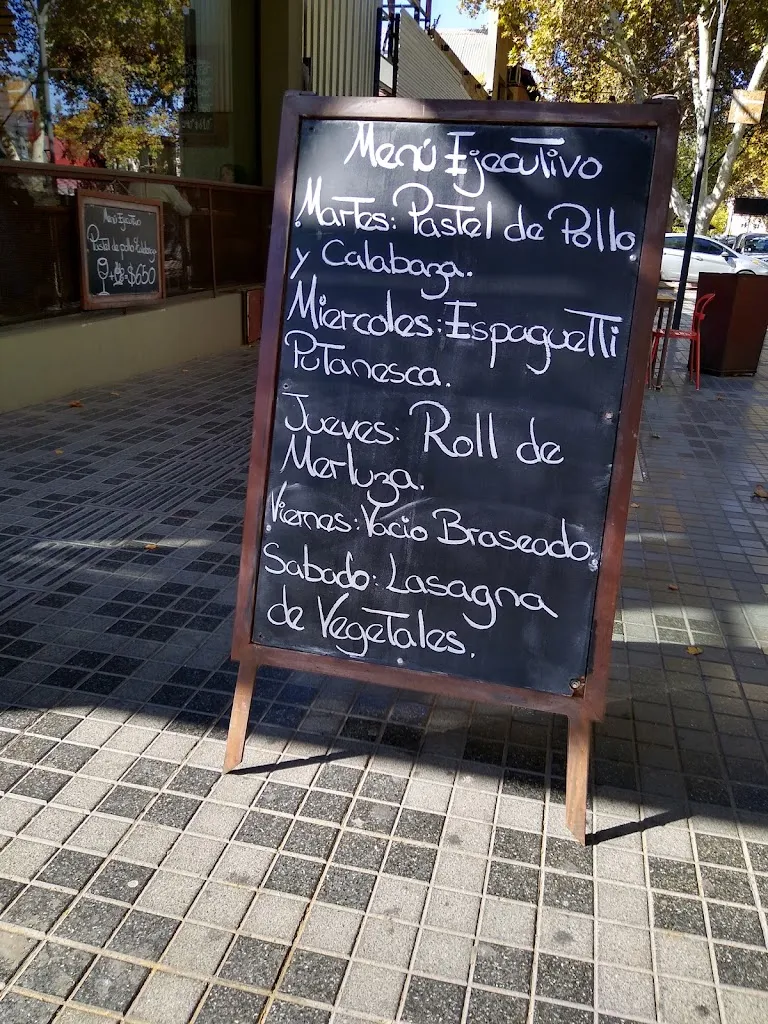 Menú Ejecutivo
Martes: Pastel de Pollo
y Calabaza.
Miercoles: Espaguetti
Putanesca.
Jueves: Roll de
Merluza.
Viernes: Vacio Braseado.
Sabado: Lasagna
de Vegetales.
Menú Ejecutivo
Pastel de pollo
$650